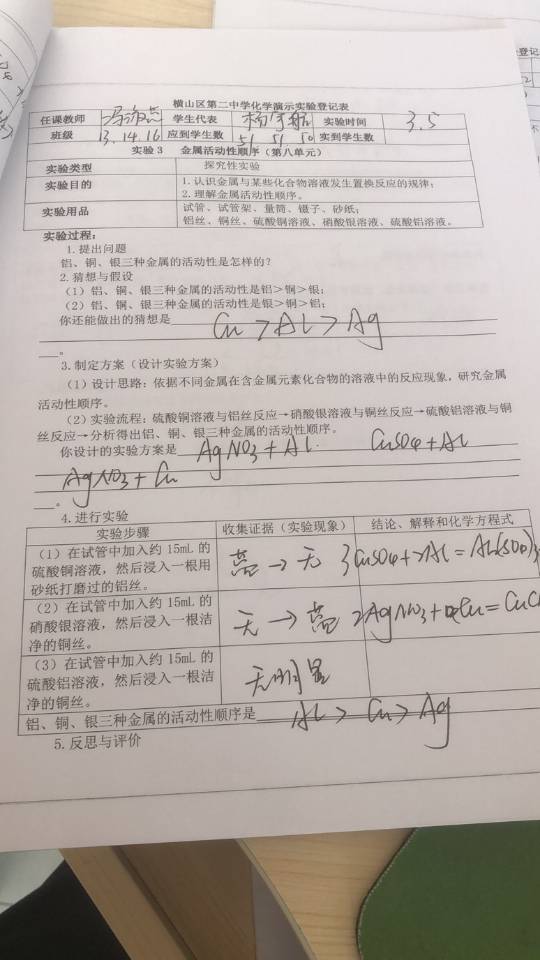 横山区第二中学化学演示实验登记表
任课教师 学生代表 杨宇航 实验时间 3.5
班级 13.14.16 应到学生数 51 51 50 实到学生数
实验3 金属活动性顺序（第八单元）
实验类型 探究性实验
实验目的 1.认识金属与某些化合物溶液发生置换反应的规律；
2.理解金属活动性顺序。
实验用品 试管、试管架、量筒、镊子、砂纸；
铝丝、铜丝、硫酸铜溶液、硝酸银溶液、硫酸铝溶液。
实验过程：
1.提出问题
铝、铜、银三种金属的活动性是怎样的？
2.猜想与假设
（1）铝、铜、银三种金属的活动性是铝>铜>银；
（2）铝、铜、银三种金属的活动性是银>铜>铝；
你还能做出的猜想是 Cu>Al>Ag
。
3.制定方案（设计实验方案）
（1）设计思路：依据不同金属在含金属元素化合物的溶液中的反应现象，研究金属
活动性顺序。
（2）实验流程：硫酸铜溶液与铝丝反应→硝酸银溶液与铜丝反应→硫酸铝溶液与铜
丝反应→分析得出铝、铜、银三种金属的活动性顺序。
你设计的实验方案是 AgNO3+Al CuSO4+Al
AgNO3+Cu
。
4.进行实验
实验步骤 收集证据（实验现象） 结论、解释和化学方程式
（1）在试管中加入约15mL的
硫酸铜溶液，然后浸入一根用
砂纸打磨过的铝丝。
蓝→无 3CuSO4+2Al=Al2(SO4)3
（2）在试管中加入约15mL的
硝酸银溶液，然后浸入一根洁
净的铜丝。
无→蓝 2AgNO3+Cu=Cu
（3）在试管中加入约15mL的
硫酸铝溶液，然后浸入一根洁
净的铜丝。
无明显
铝、铜、银三种金属的活动性顺序是 Al>Cu>Ag
5.反思与评价